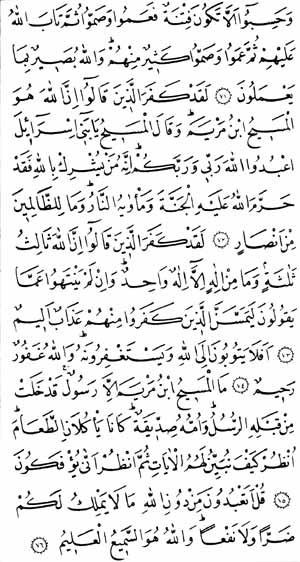 وَحَسِبُوا أَلَّا تَكُونَ فِتْنَةٌ فَعَمُوا وَصَمُّوا ثُمَّ تَابَ اللهُ
عَلَيْهِمْ ثُمَّ عَمُوا وَصَمُّوا كَثِيرٌ مِنْهُمْ وَاللهُ بَصِيرٌ بِمَا
يَعْمَلُونَ ﴿٧١﴾ لَقَدْ كَفَرَ الَّذِينَ قَالُوا إِنَّ اللهَ هُوَ
الْمَسِيحُ ابْنُ مَرْيَمَ وَقَالَ الْمَسِيحُ يَابَنِي إِسْرَائِلَ
اعْبُدُوا اللهَ رَبِّي وَرَبَّكُمْ إِنَّهُ مَنْ يُشْرِكْ بِاللهِ فَقَدْ
حَرَّمَ اللهُ عَلَيْهِ الْجَنَّةَ وَمَأْوَيهُ النَّارُ وَمَا لِلظَّالِمِينَ
مِنْ أَنْصَارٍ ﴿٧٢﴾ لَقَدْ كَفَرَ الَّذِينَ قَالُوا إِنَّ اللهَ ثَالِثُ
ثَلٰثَةٍ وَمَا مِنْ إِلٰهٍ إِلَّا إِلٰهٌ وَاحِدٌ وَإِنْ لَمْ يَنْتَهُوا عَمَّا
يَقُولُونَ لَيَمَسَّنَّ الَّذِينَ كَفَرُوا مِنْهُمْ عَذَابٌ أَلِيمٌ
﴿٧٣﴾ أَفَلَا يَتُوبُونَ إِلَى اللهِ وَيَسْتَغْفِرُونَهُ وَاللهُ غَفُورٌ
رَحِيمٌ ﴿٧٤﴾ مَا الْمَسِيحُ ابْنُ مَرْيَمَ إِلَّا رَسُولٌ قَدْ خَلَتْ
مِنْ قَبْلِهِ الرُّسُلُ وَأُمُّهُ صِدِّيقَةٌ كَانَا يَأْكُلَانِ الطَّعَامَ
أُنْظُرْ كَيْفَ نُبَيِّنُ لَهُمُ الْاٰيَاتِ ثُمَّ انْظُرْ أَنّٰى يُؤْفَكُونَ
﴿٧٥﴾ قُلْ أَتَعْبُدُونَ مِنْ دُونِ اللهِ مَا لَا يَمْلِكُ لَكُمْ
ضَرًّا وَلَا نَفْعًا وَاللهُ هُوَ السَّمِيعُ الْعَلِيمُ ﴿٧٦﴾